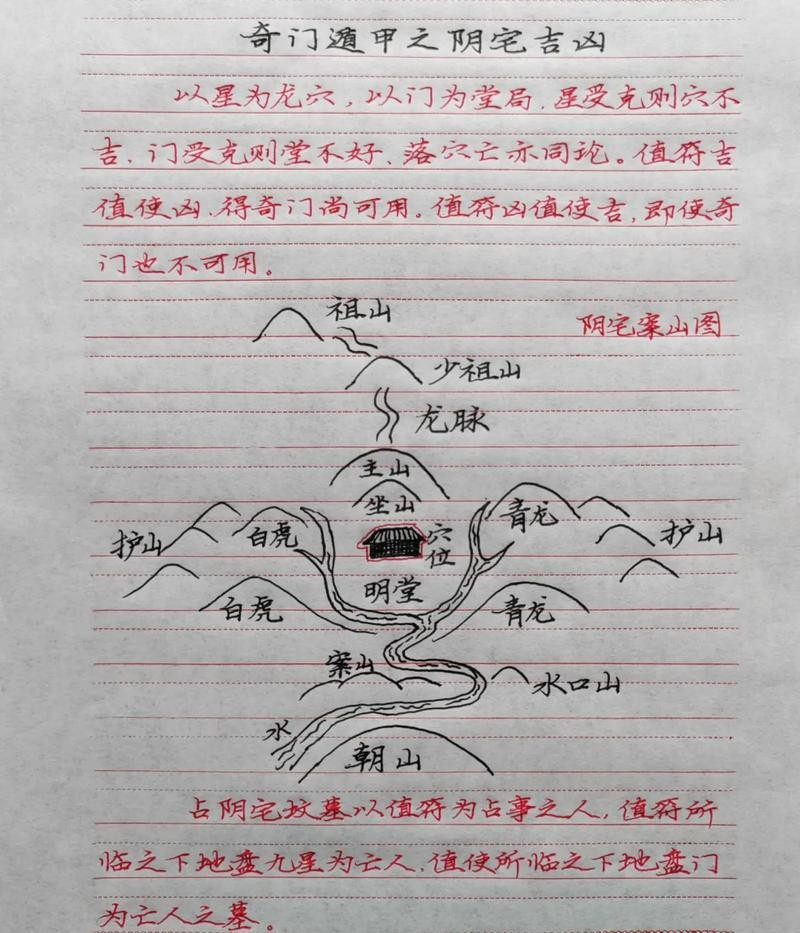 奇门遁甲之阴宅吉凶
以星为龙穴，以门为堂局，星受克则穴不
吉，门受克则堂不好，落穴亡亦同论。值符吉
值使凶，得奇门尚可用。值符凶值使吉，即使奇
门也不可用。
祖山
阴宅案山图
少祖山
龙脉
主山
坐山
护山
白虎
穴位
青龙
护山
明堂
白虎
青龙
案山
水口山
水
朝山
占阴宅坟墓以值符为占事之人，值符所
临之下地盘九星为亡人，值使所临之下地盘门
为亡人之墓。